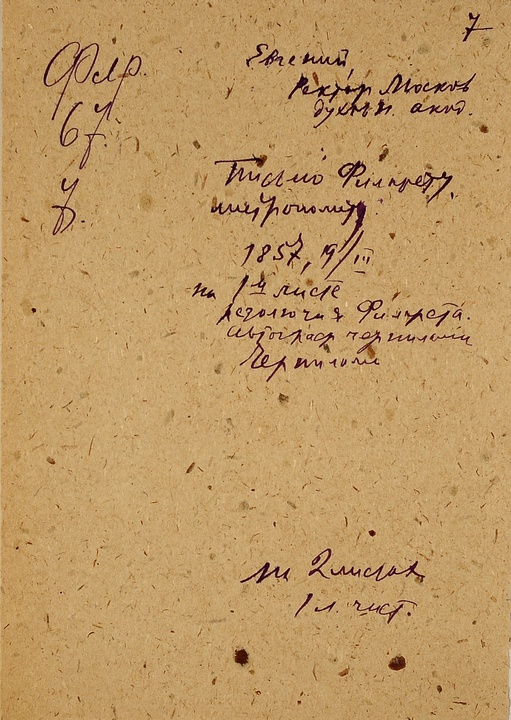 7
Филар.
67.
7.
Евгений,
ректор Москов
духовн. акад.
Письмо Филарету,
митрополиту
1857, 19/III
на 1м листе
резолюция Филарета.
автограф чернилами
Чернилами
на 2 листах
1 л. чист.